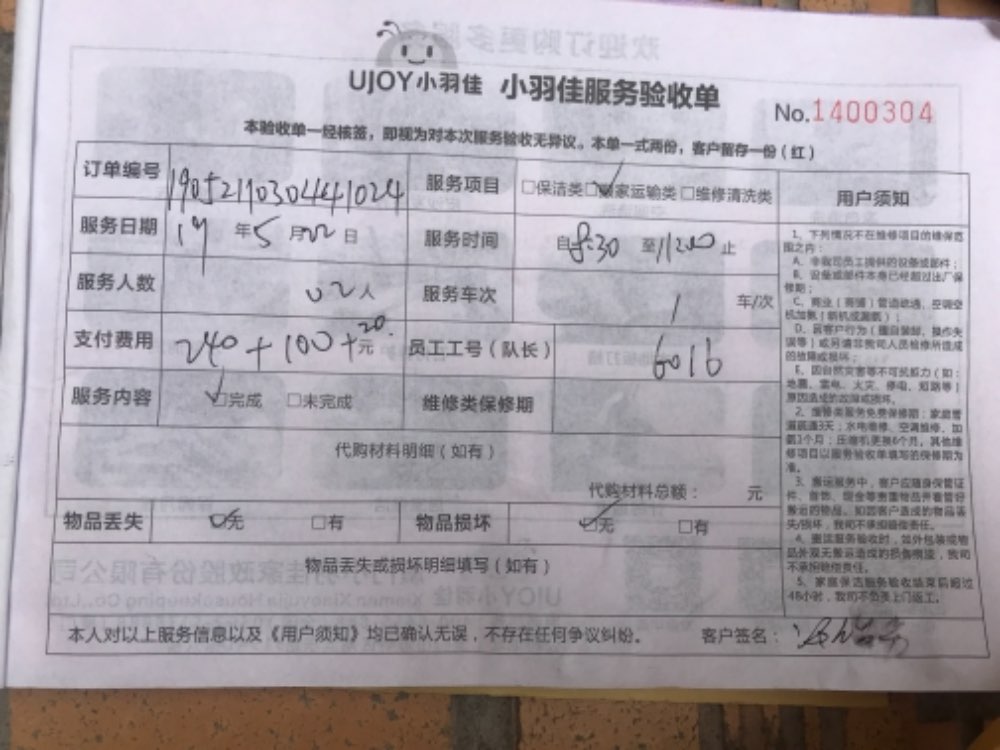 UJOY小羽佳 小羽佳服务验收单
No.1400304
本验收单一经核签，即视为对本次服务验收无异议。本单一式两份，客户留存一份（红）
订单编号 190521103044441024 服务项目 □保洁类 □搬家运输类 □维修清洗类
服务日期 19年5月22日 服务时间 自8:30至11:00止
服务人数 02人 服务车次 1 车/次
支付费用 240+100+20元 员工工号（队长） 6016
服务内容 □完成 □未完成 维修类保修期
代购材料明细（如有）
代购材料总额： 元
物品丢失 □无 □有 物品损坏 □无 □有
物品丢失或损坏明细填写（如有）
本人对以上服务信息以及《用户须知》均已确认无误，不存在任何争议纠纷。 客户签名：
用户须知
1、下列情况不在维修项目的维保范
围之内：
A、非我司员工提供的设备或部件；
B、设备或部件本身已经超过出厂保
修期；
C、商业（商铺）管道疏通、空调空
机加氨（新机或漏氨）；
D、因客户行为（擅自装卸、操作失
误等）或另请非我司人员检修所造成
的故障或损坏；
E、因自然灾害等不可抗力（如：
地震、雷电、火灾、停电、短路等）
原因造成的故障或损坏。
2、维修类服务免费保修期：家庭管
道疏通3天；水电维修、空调维修、加
氨1个月；压缩机更换6个月，其他维
修项目以服务验收单填写的保修期为
准。
3、搬运服务中，客户应随身保管证
件、首饰、现金等贵重物品并看管好
搬运的物品。如因客户造成的物品丢
失/损坏，我司不承担赔偿责任。
4、搬运服务验收时，如外包装或物
品外观无搬运造成的损伤痕迹，我司
不承担赔偿责任。
5、家庭保洁服务验收结束后超过
48小时，我司不负责上门返工。